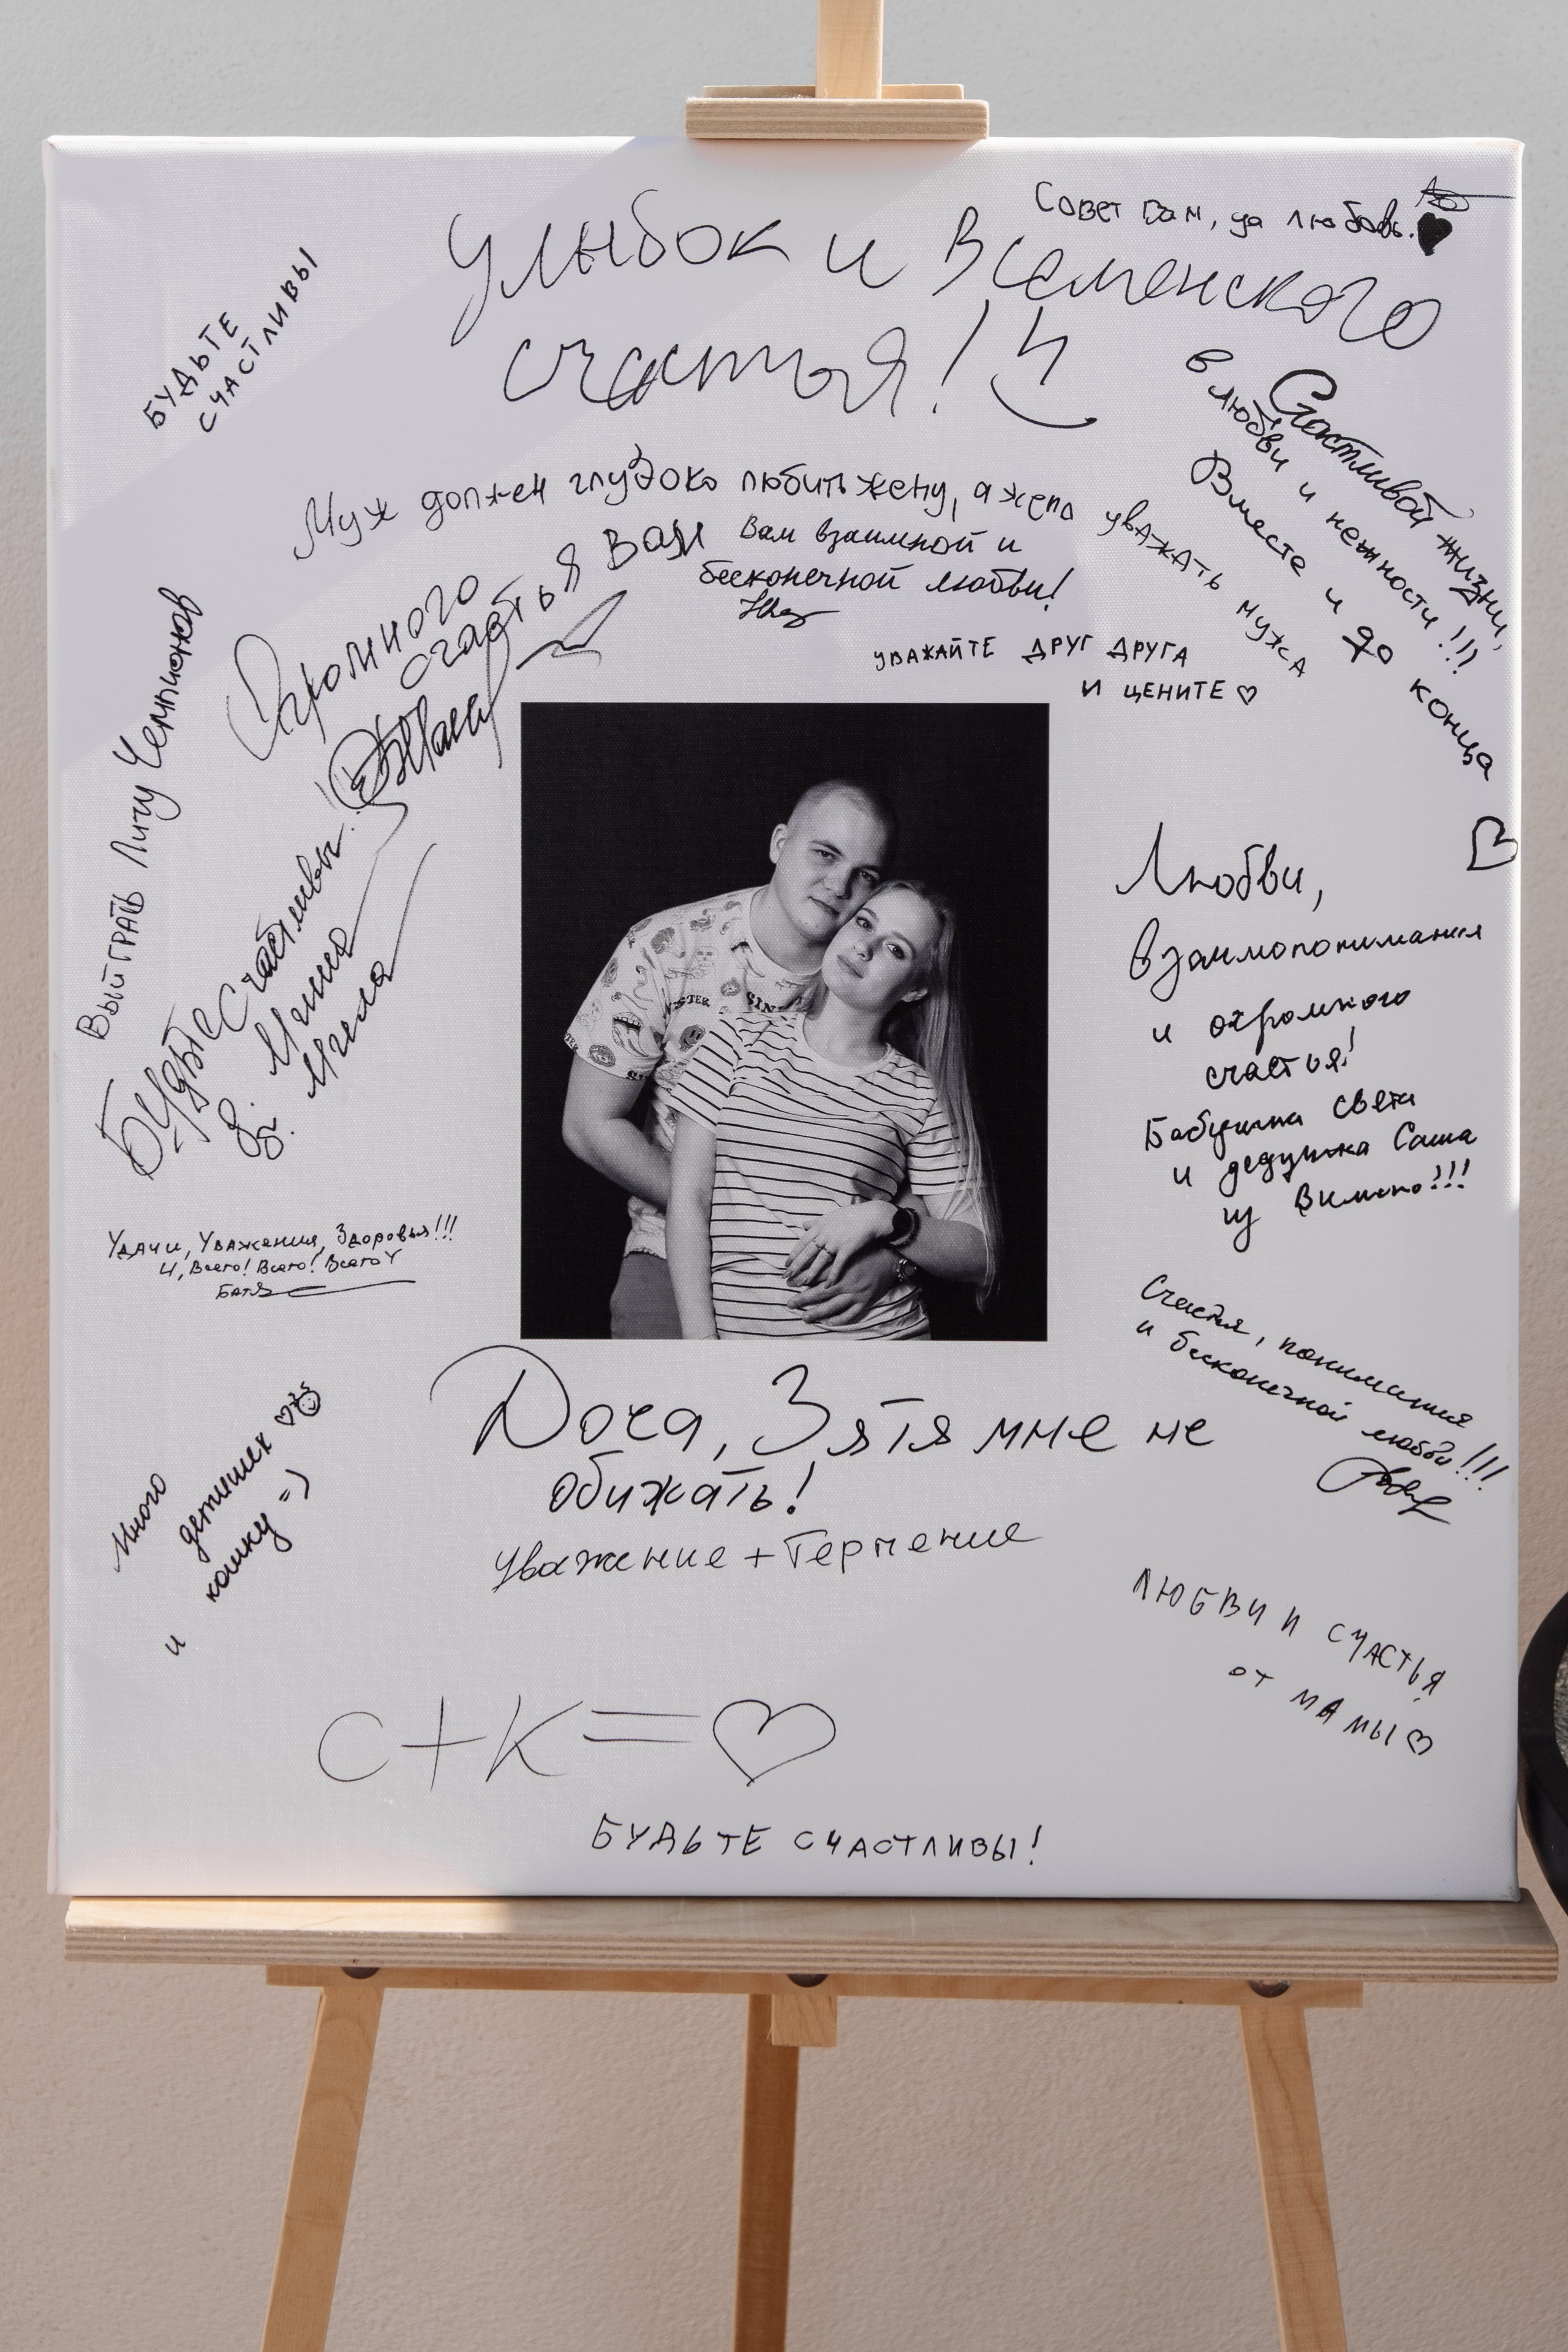 Совет вам, да любовь.
Улыбок и Вселенского
счастья!
БУДЬТЕ
СЧАСТЛИВЫ
Счастливой жизни,
в любви и нежности!!!
Вместе и до конца
Муж должен глубоко любить жену, а жена уважать мужа
Огромного
счастья Вам
Вам взаимной и
бесконечной любви!
УВАЖАЙТЕ ДРУГ ДРУГА
И ЦЕНИТЕ
Выйграть Лигу Чемпионов
Будьте счастливы.
Любви,
взаимопонимания
и огромного
счастья!
Бабушка Света
и дедушка Саша
из
GIN
Удачи, Уважения, Здоровья!!!
И, Всего! Всего! Всего
БАТЯ
Счастья, понимания
и бесконечной любви!!!
Доча, Зятя мне не
обижать!
Уважение + Терпение
Много
детишек
и кошку =)
ЛЮБВИ И СЧАСТЬЯ
ОТ МАМЫ
С+К=
БУДЬТЕ СЧАСТЛИВЫ!